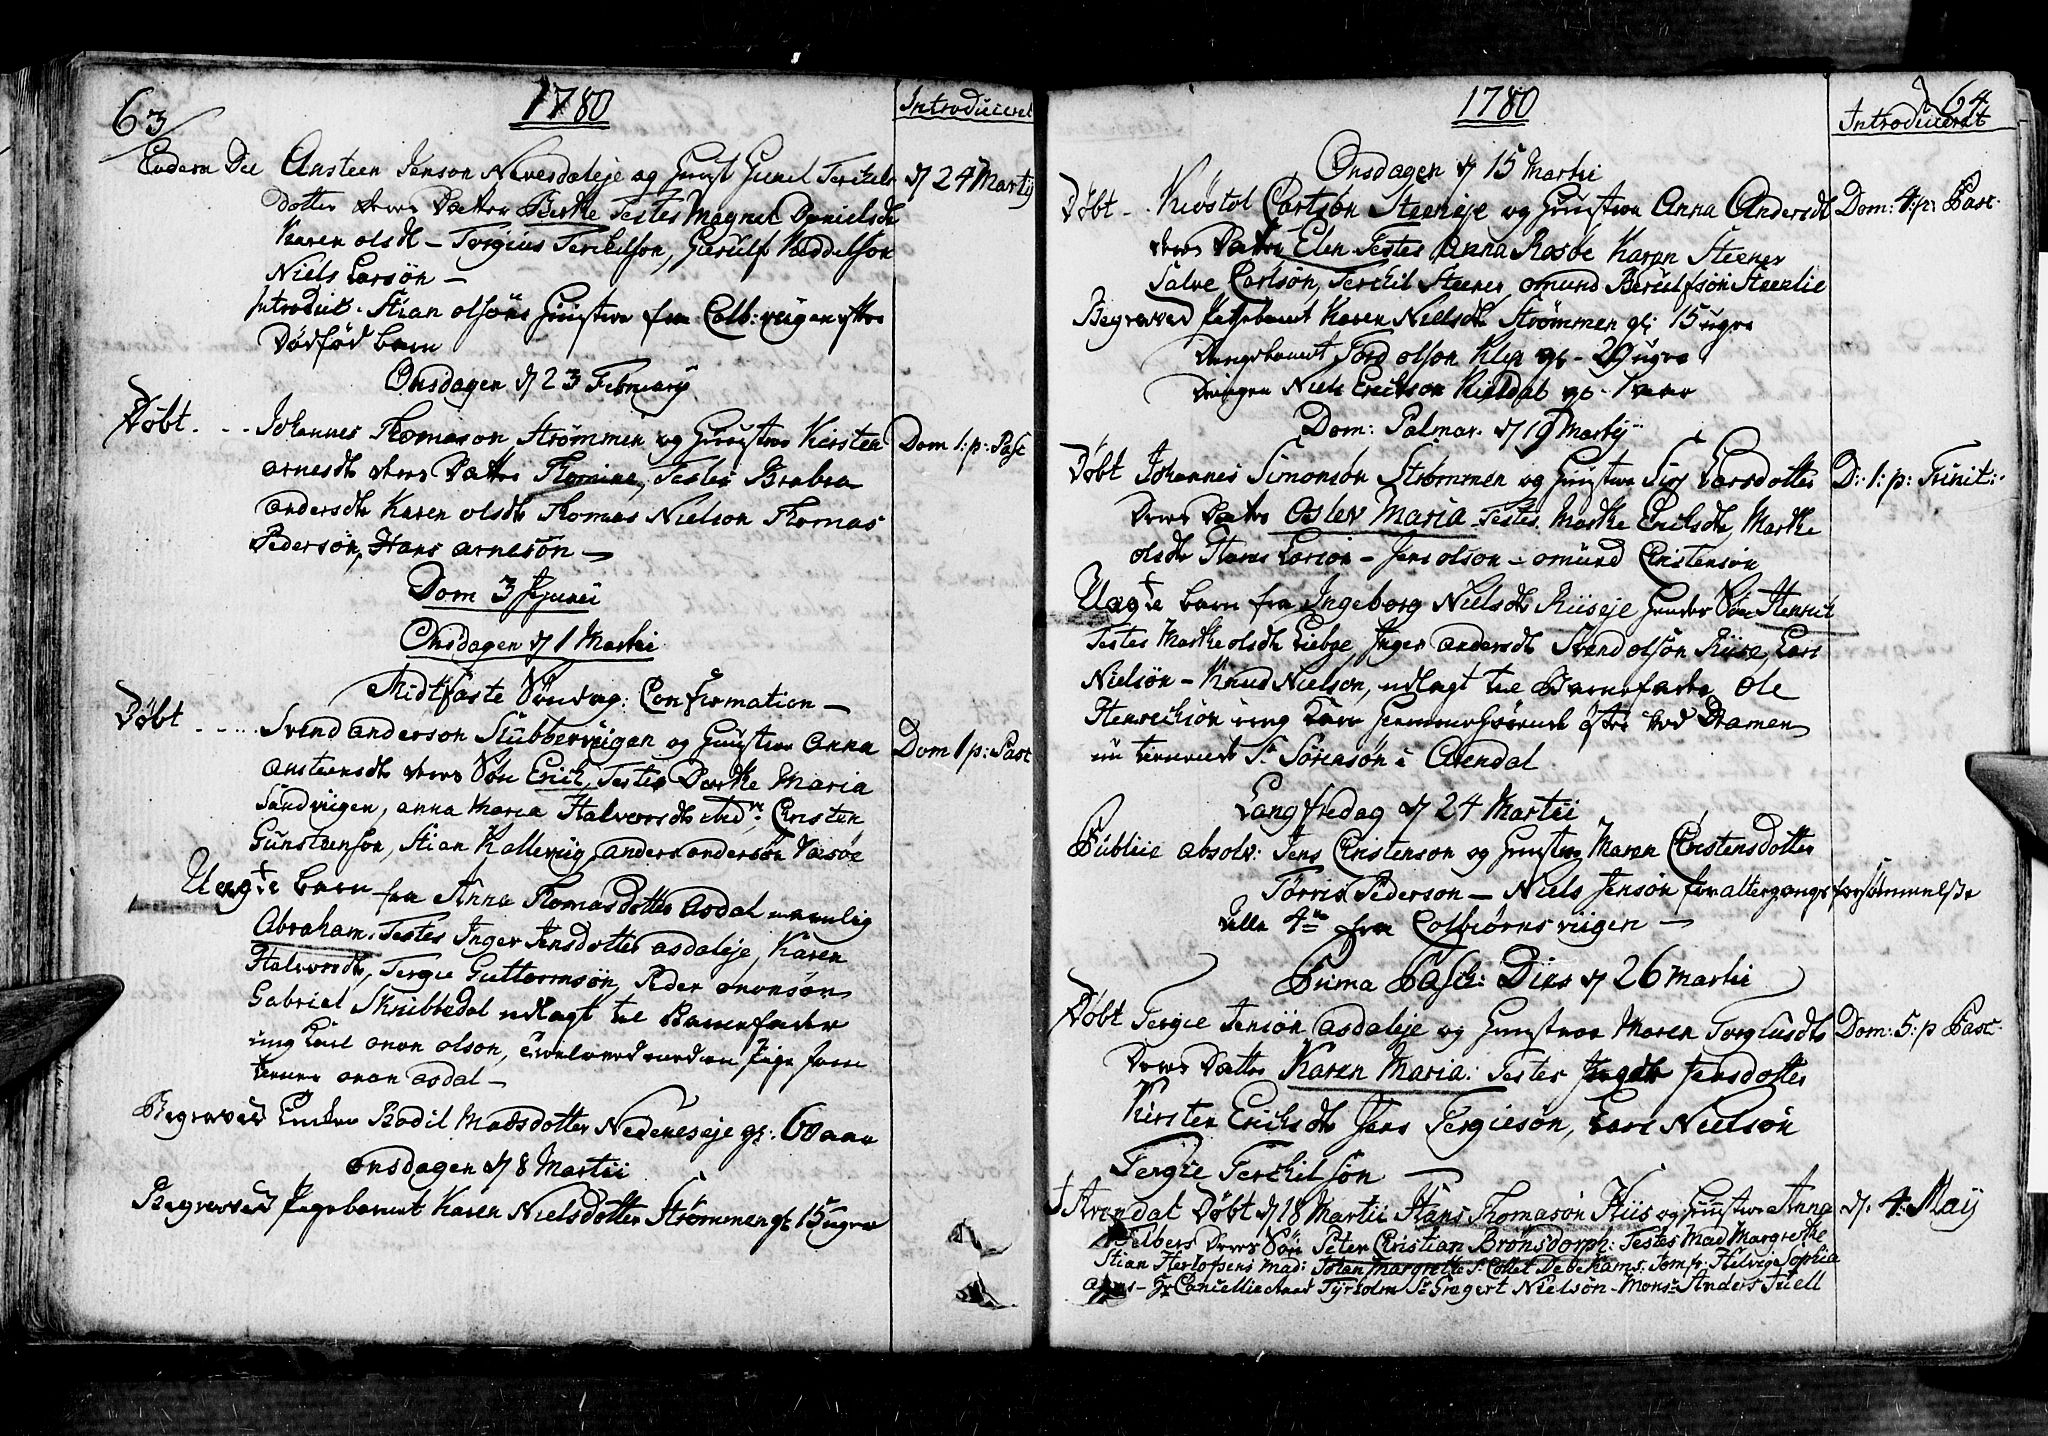 63
1780
Introduceret
Ansteen Jenson Nævesdaleje og Hust Gunil Terkels
d 24 Martij
dotter deres Datter Berthe Testes Magnel Danielsdt
Karen olsdt – Torgius Terkilson, Gierulf Keddelson
Niels Larsön –
Introdut. Stian olsöns Hustrue fra Colb: viigen efter
Dödföd barn
Onsdagen d 23 February
Döbt
Johannes Thomason Strömmen og Hustrue Kirsten
Dom 1: p: Pasc
arnesdt deres Datter Thomine, Testes Brabra
andersdt Karen olsdt Thomas Nielson Thomas
Pedersön, Hans arnesön –
Dom 3 Jejunii
Onsdagen d 1 Martii
Midtfaste Söndag: Confirmation –
Döbt
Svend anderson Stubberviigen og Hustrue Anna
Dom 1 p: Pasc
anstensdt deres Sön Erich, Testes Dorthe Maria
Sandviigen, anna Maria Halvorsdt Christen
Gunstenson, Stian Kallevig anders andersön
Uægte barn fra Anna Thomasdotter Asdal navnlig
Abraham. Testes Inger Jensdotter asdaleje, Karen
Halvorsdt, Tergie Guttormsön, Peder ononsön
Gabriel Skribbedal udlagt til Barnefader
ung Karl onon olson,
tienner onon asdal –
Begravet Enken Bodil Madsdotter Nedeneseje gl: 60 aar
onsdagen d 8 Martii
Begravet Pigebarnet Karen Nielsdotter Strömmen gl 15 uger
64
1780
Introduceret
Onsdagen d 15 Martii
Döbt – Kiöstol Carlsön Steeneje og Hustrue Anna Andersdt
Dom: 4: p: Pasc:
deres Datter Elen Testes Anna Rosöe Karen Steener
Salve Carlsön, Terkil Steener omund Berulfsön Steenlie
Begravet Pigebarnet Karen Nielsdt Strömmen gl: 15 uger
Drengebarnet Tord olson Klep gl – 29 uger
Drengen Niels Erickson Kieldal gl – 1 aar
Dom: Palmar. d 19 Martij
Döbt Johannes Simonsön Strömmen og Hustrue Siri Larsdotter
D: 1: p: Trinit:
deres Datter Aslev Maria Testes. Marthe Ericksdt, Marthe
olsdt Hans Larsön – Jens olson – omund Christensön
Uægte barn fra Ingeborg Nielsdt Riiseje hendes Sön Henrich
Testes Marthe olsdt Inger andersdt Svend olsön Riise, Lars
Nielsön – Knud Nielson, udlagt til Barnefader Ole
Henrichsön ung Karl ved Dramen
nu Sr Sörensön i Arendal
Langfredag d 24 Martii
Publice absolv: Jens Christenson og Hustrue Maren Christensdotter
Törres Pederson – Niels Jensön for altergangs forsömmelse
alle 4re fra Colbiörnsviigen –
Prima Pasch: Dies d 26 Martii
Döbt Tergie Jensön asdaleje og Hustrue Maren Torgiusdt
Dom: 5: p Pasc:
deres Datter Karen Maria: Testes Jensdotter
Kirsten Ericksdt Jens Tergiesön, Lars Nielsön
Tergie Terkilsön
I Arendal Döbt d 18 Martii Hans Thomasön Hiis og Hustrue Anna
d. 4: May
Felbers deres Sön Peter Christian Brönsdorph: Testes Mad Margrethe
Stian Herlofsens Mad: Johan Margrethe Sr Collet Debehams. Jomfr: Helvige Sophia
Hr Cancellieraad Tyrholm Sr Gregert Nielsön – Monsr Anders Juell